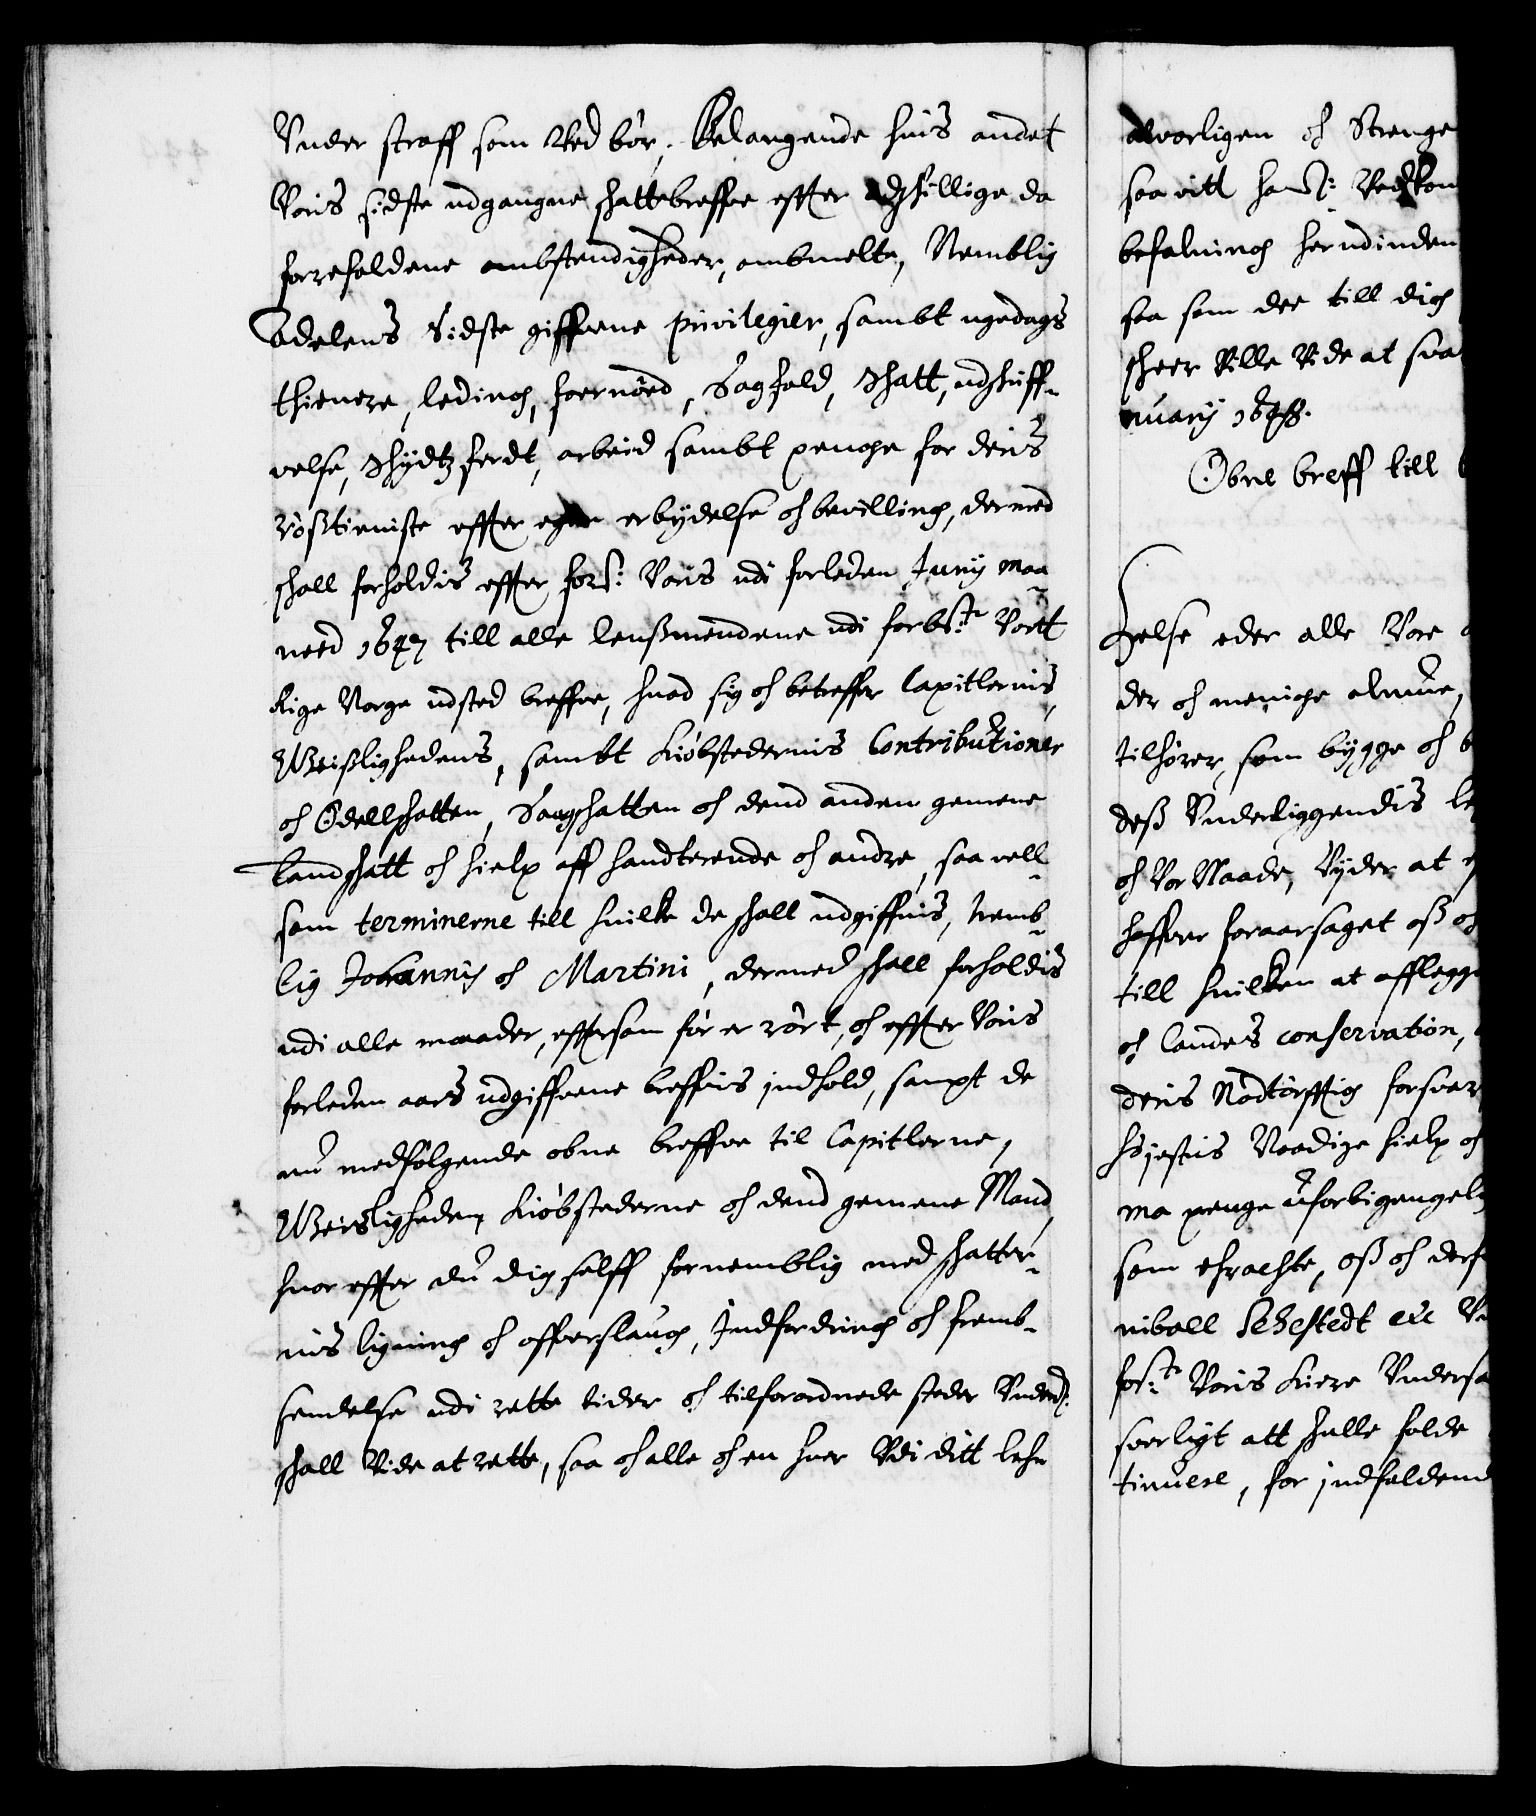 Vnder straff som Ved bör, Belangende huis andet
Voris sidste udgangne skattebreffue effter adskillige da
forrefaldene ombstendigheder, ombmelte, Nemblig
Adelens Sidste giffuene privilegier, sambt ugedags
thienere, leding, foernöed, Sagfald, Skatt, udskriff-
velse, Skydtzferdt, arbeid sambt penge for deris
Rostieniste effter egen erbydelse oc bevilling, dermed
skall forholdis effter fors: Voris udi forleden Junij maa-
need 1647 till alle lenßmendene udi forbe:te Vortt
Rige Norge udsted breffue, huad sig oc betreffer Capitlernis,
Geistlighedens, sambt Kiöbstedernis Contributioner
oc Odellskatten, Saugskatten oc dend anden gemene
landskatt oc hielp aff handterende oc andre, saa vell
som terminerne till huilke de skall udgiffuis, nemb-
lig Johannis oc Martini, dermed skall forholdis
udi alle maader, effterson för er rört, oc effter Voris
forleden aars udgiffuene breffuis indhold, sampt de
nu medfölgende obne breffue til Capitlerne,
Geistligheden, Kiöbstederne oc dend gemene Mand,
huor effter du dig selff fornemblig med skatter-
nis ligning oc offuerslaug, Indfordring oc fremb-
sendelse udi rette tider oc tilforordnede steder Vnderd:
skall Vide at rette, saa oc alle oc en huer Udi ditt lehn
alvorligen oc Strenge
saa vitt hans: Vedkom
befalning herudinden
saa som dee till dig
skeer Ville Vide at sva
nuarij 1648.
Obne breff till
Helse eder alle Vore
der oc menige almue,
tilhörer, som bygge oc b
deß Vnderliggendis le
oc Vor Naade, Vyder at
haffuer foraarsaget oß oc
till huilken at afflegge
oc landes conservation,
deris Nödtörfftig forsvar
höjestis Naadige hielp oc
ma penge uforbigengel
som erachte, oß oc derf
niball Sehestedt etc V
for:te Voris Kiere Vndersa
sverligt att skulle falde
tinuere, for jndfaldend